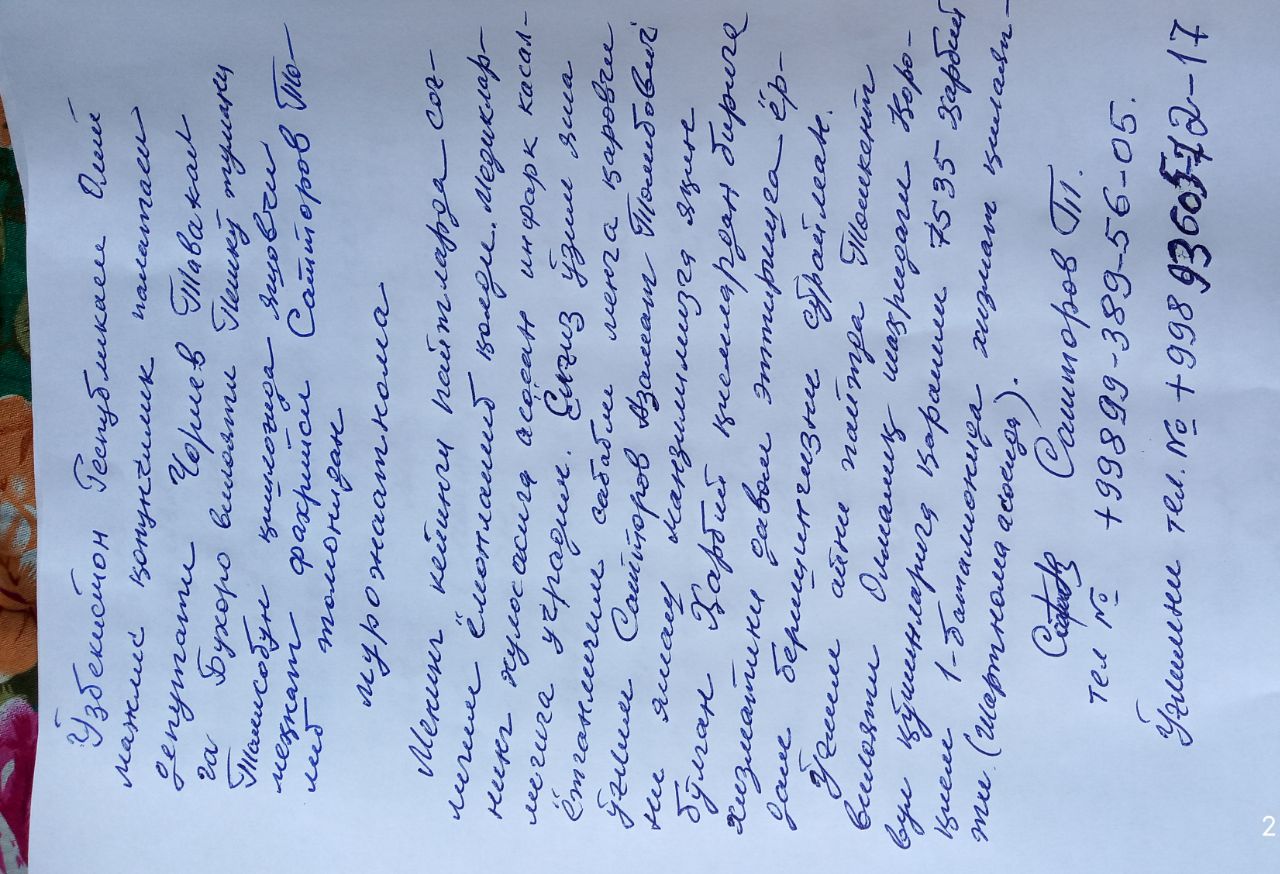 Ўзбекистон Республикаси Олий
мажлис қонунчилик палатаси
депутати Чориев Таваккал
га Бухоро вилояти Пешкў тумани
Томкобун қишлоғида яшовчи
меҳнат фахрийси Сатторов То-
либ томонидан
мурожаатнома
Менинг кейинги пайтларда соғ-
лиғим ёмонлашиб қолди. Медиклар-
нинг хулосасига асосан инфарк касал-
лигига учрадим. Ёлғиз ўзим яша
ётганлигим сабабли менга қаровчи
ўғлим Сатторов Азамат Толибович
ни яшаш манзилимизга яқин
бўлган Ҳарбий қисмлардан бирига
хизматини давом эттиришга ёр-
дам беришингизни сўрайман.
Ўғлим айни пайтда Тошкент
вилояти Олмалиқ шаҳридаги Қоро-
вул қўшинларига қарашли 7535 ҳарбий
қисм 1-баталионида хизмат қилаяп-
ти. (Шартнома асосида).
Сатторов Т.
тел № +99899-389-56-05.
Ўғлимни тел. № +998 93605-72-17
2